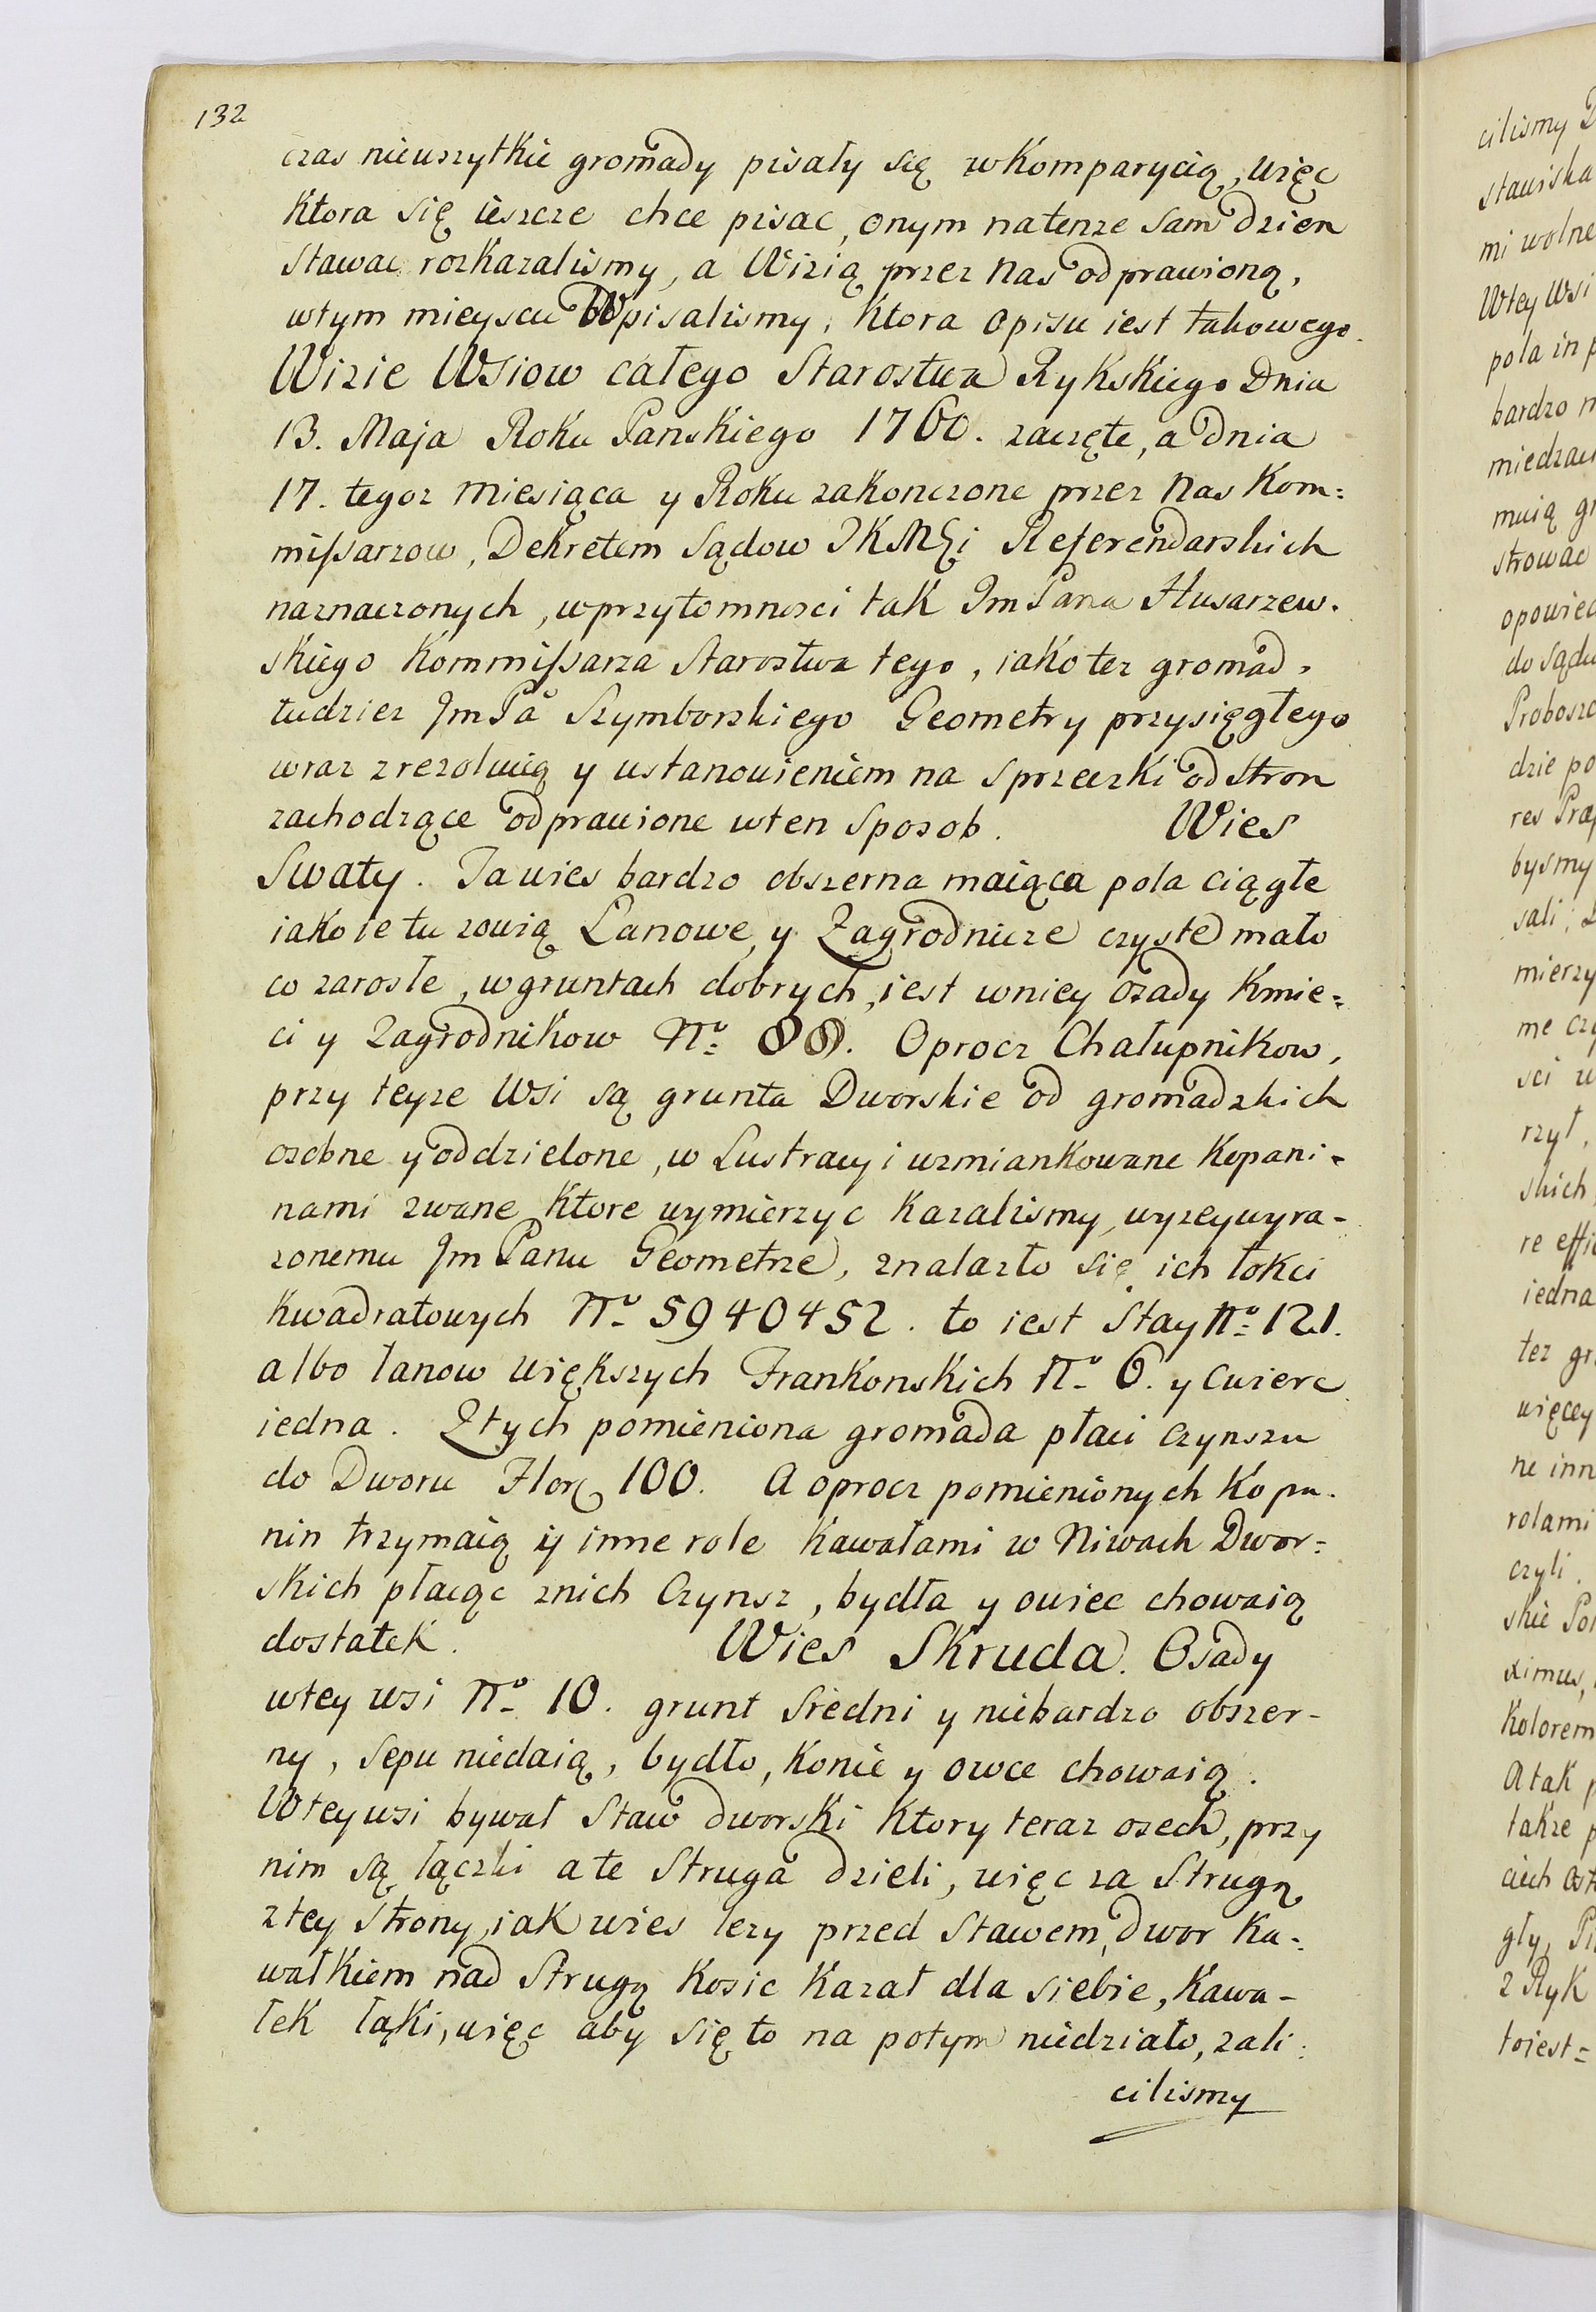 132
czas niewszytkie gromady pisały się w Komparycią, więc
Ktora się ieszcze chce pisac, onym natenze sam dzien
stawac rozkazalismy, a Wizią przez nas odprawioną,
wtym mieyscu Wpisalismy, Ktora opisu iest takowego.
Wizie Wsiow całego Starostwa Rykskiego Dnia
13. Maja Roku Panskiego 1760. zaczęte, a dnia
17. tegoz miesiąca y Roku zakonczone przez nas Kom=
missarzow, Dekretem Sądow JKMSCi Referendarskich
naznaczonych, w przytomnosci tak Jm Pana Husarzew.
skiego Kommissarza Starostwa tego, iako tez gromad,
tudziez Jm Pa Szymborskiego Geometry przysięgłego
wraz z rezolucią y ustanowieniem na sprzeczki od stron
zachodzące odprawione wten sposob. Wies
Swaty. Ta wies bardzo obszerna maiąca pola ciągłe
iako ie tu zowią Lanowe, y Zagrodnicze czyste mało
co zarosłe, w gruntach dobrych, iest wniey osady Kmie=
ci y Zagrodnikow No 88. Oprocz Chałupnikow,
przy teyze Wsi są grunta Dworskie od gromadzkich
osobne y oddzielone, w Lustracyi wzmiankowane Kopani=
nami zwane, Ktore wymierzyc kazalismy, wyzeywyra-
zonemu Jm Panu Geometrze, znalazło się ich łokci
Kwadratowych No 5940452. to iest Stay No 121.
albo łanow większych Frankonskich No 6. y cwierc
iedna. Z tych pomieniona gromada płaci czynszu
do Dworu Flor 100. A oprocz pomienionych Kopa.
nin trzymaią y inne role Kawałami w Niwach Dwor=
skich płacąc znich Czynsz, bydła y owiec chowaią
dostatek. Wies Skruda. Osady
wtey wsi No 10. grunt sredni y niebardzo obszer-
ny, sepu niedaią, bydło, Konie y owce chowaią.
Wtey wsi bywał staw dworski Ktory teraz osech, przy
nim są łączki a te Struga dzieli, więc za Strugą
z tey strony, iak wies lezy przed Stawem, dwor Ka=
wałkiem nad Strugą Kosic Kazał dla siebie, Kawa-
łek łąki, więc aby się to na potym niedziało, zali=
cilismy
cilismy
stawiska
mi wolne
Wtey Wsi
pola in
bardzo
strowac
do Sądu
dzie
bysmy
sali;
mierzy
rzył,
skich
iedna
tez
więcey
rolami
czyli.
skie
ximus,
Kolorem
A tak
takze
gły,
z Ryk
toiest=